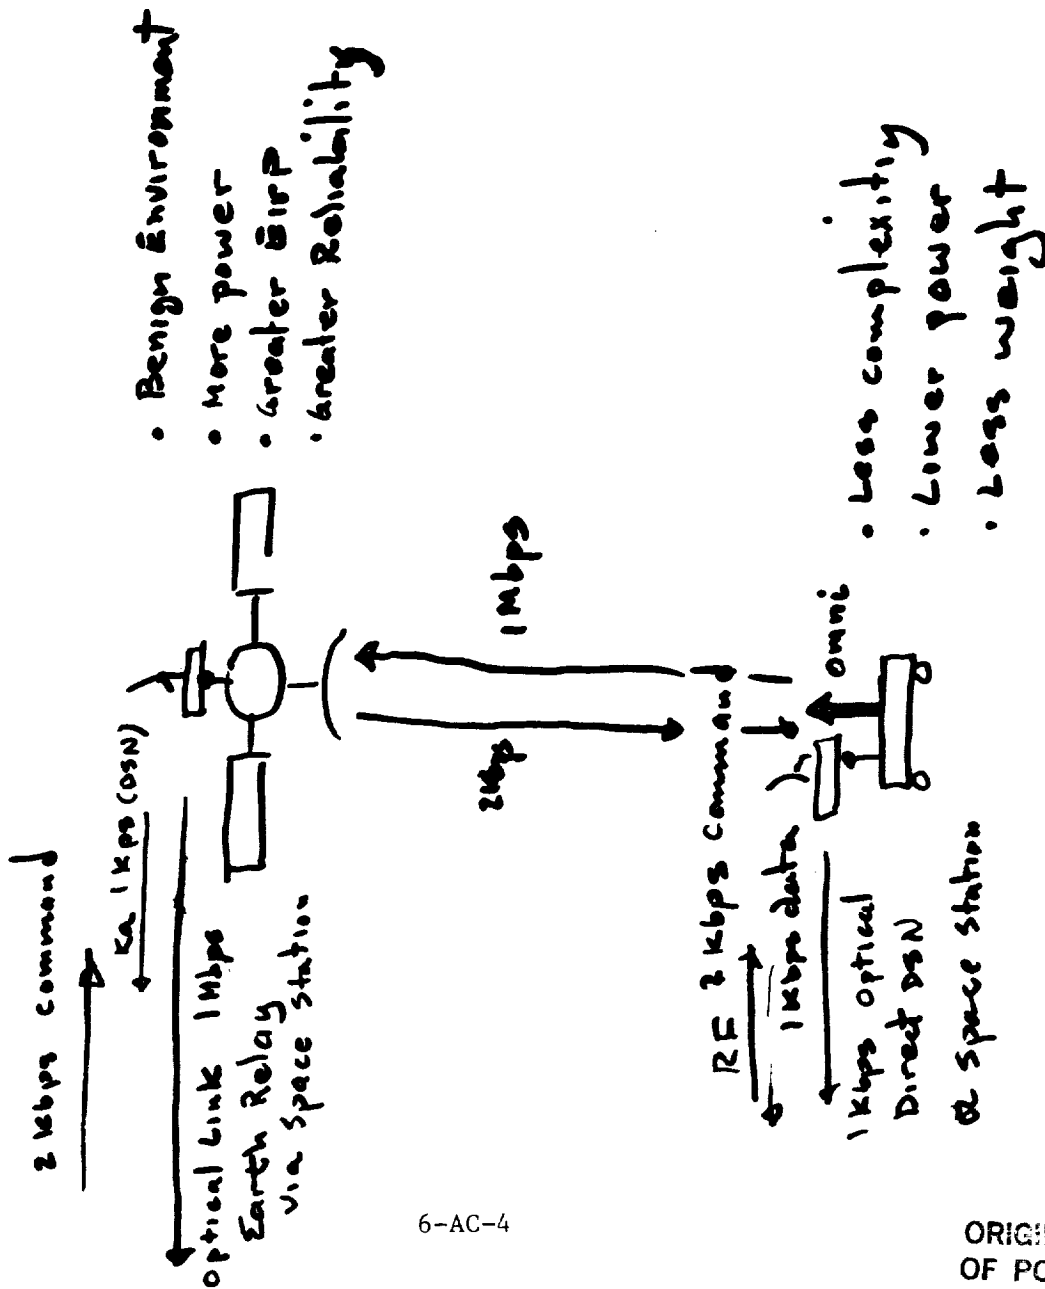 2 Kbps command
Ka 1 Kps (DSN)
Optical Link 1 Mbps
Earth Relay
via Space Station
• Benign Environment
• More power
• Greater Eirp
• Greater Reliability
2Kbps
1 Mbps
RF 2 Kbps Command
1 Kbps data
omni
1 Kbps Optical
Direct DSN
Space Station
• Less complexity
• Lower power
• Less weight
6-AC-4
ORIGI
OF PO